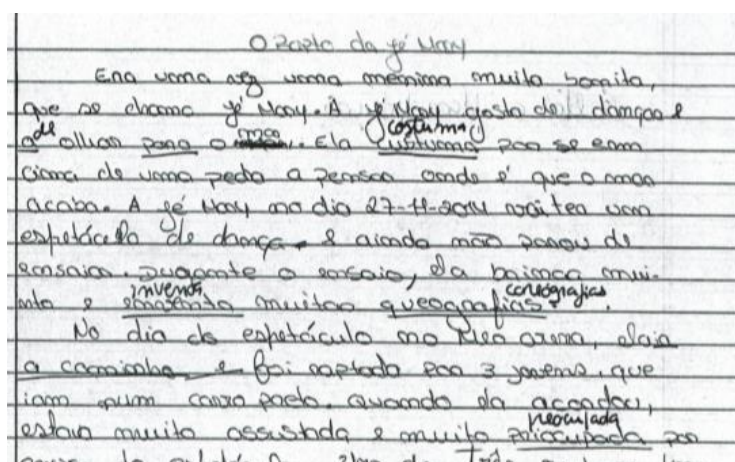 O Rapto da Jé Mary
Era uma vez uma menina muito bonita,
que se chama Jé Mary. A Jé Mary gosta de dançar e
de olhar para o mar. Ela costuma pôr se em
cima de uma pedra a pensar onde é que o mar
acaba. A Jé Mary no dia 27-11-2014 vai ter um
espetáculo de dança e ainda não parou de
ensaiar. Durante o ensaio, ela brinca mui-
inventa coreografias
nto e muitas queografias.
No dia do espetáculo no Meo arena, ela ia
a caminho e foi raptada por 3 jovens, que
iam num carro preto. Quando ela acordou,
preocupada
estava muito assustada e muito priocupada por